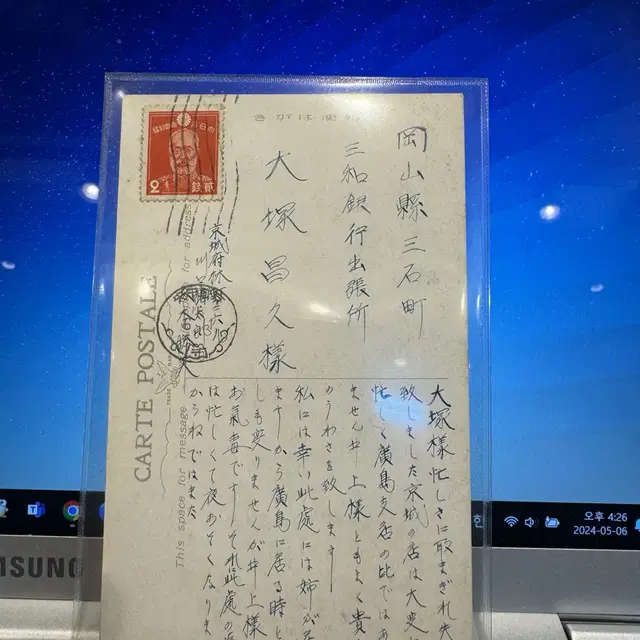 きがは便郵
岡山縣三石町
三和銀行出張所
大塚昌久様
京城府
CARTE POSTALE
This space for message
for address
大塚様忙しさに取まぎれ失
致しました京城の店は大変
忙しく廣島支店の比ではあ
ません井上様ともよく貴
のうわさを致します
私には幸い此處には姉が居
ますから廣島に居る時と
しも変りませんが井上様
お氣毒ですそれ此處の
は忙しくて夜おそくなりま
からねではまた
SAMSUNG
오후 4:26
2024-05-06